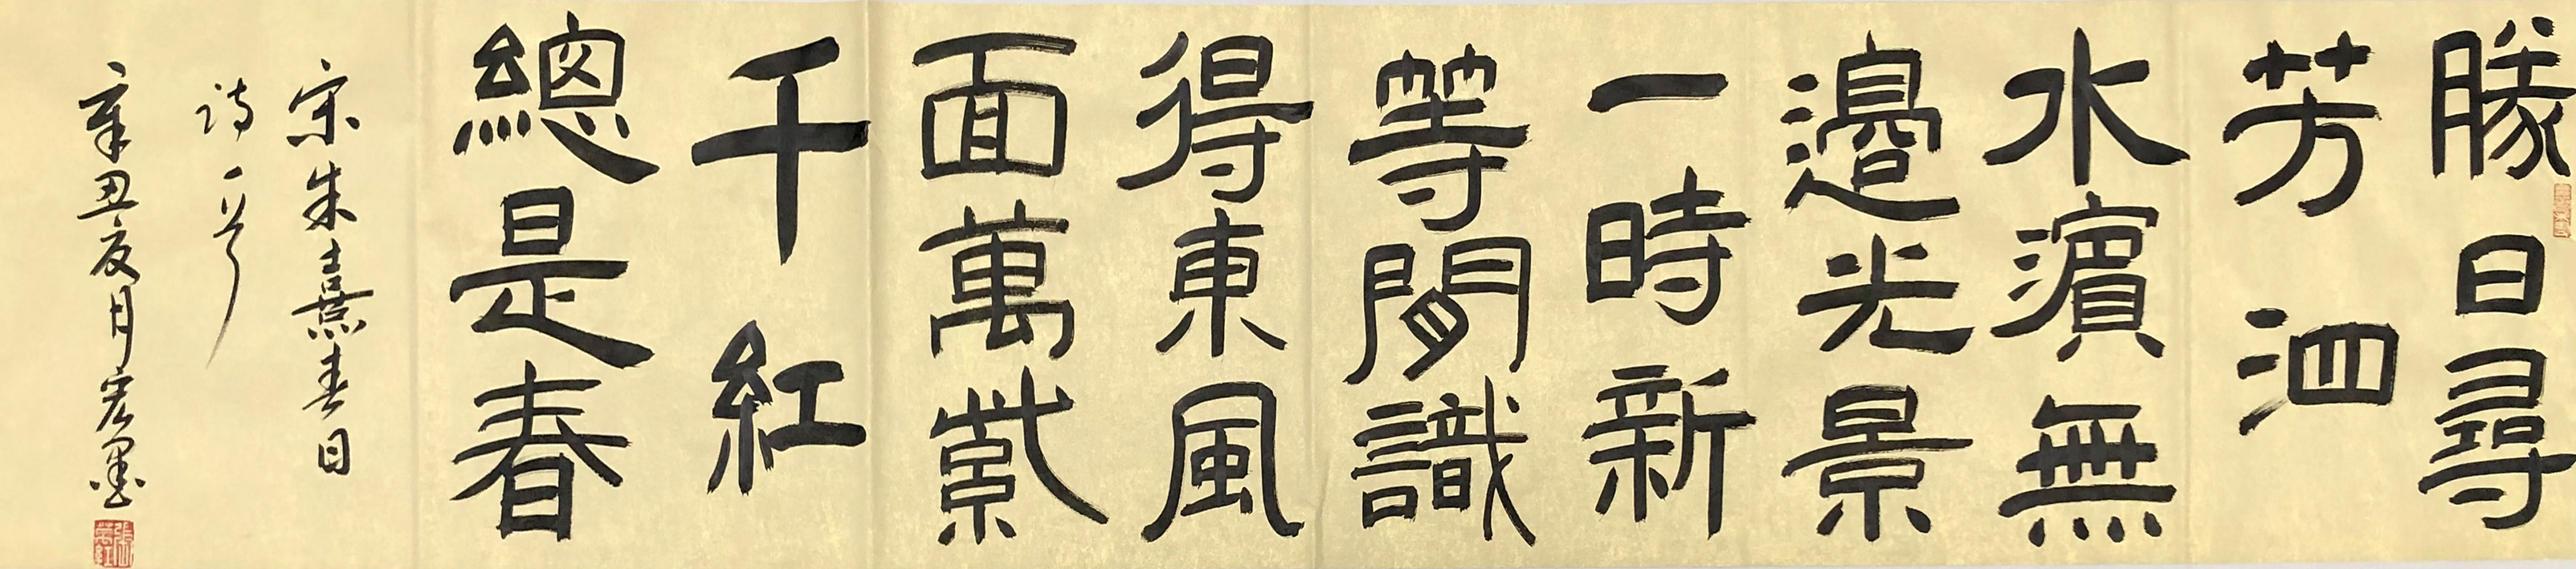 勝日尋
芳泗
水濵無
邊光景
一時新
等閒識
得東風
面萬紫
千紅
總是春
宋朱熹春日
詩一首
辛丑亥月宏墨